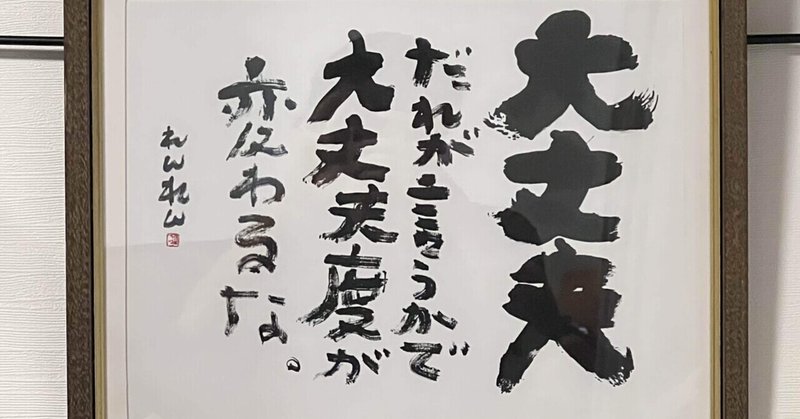 大丈夫
だれが言うかで
大丈夫度が
変わるな。
れんれん